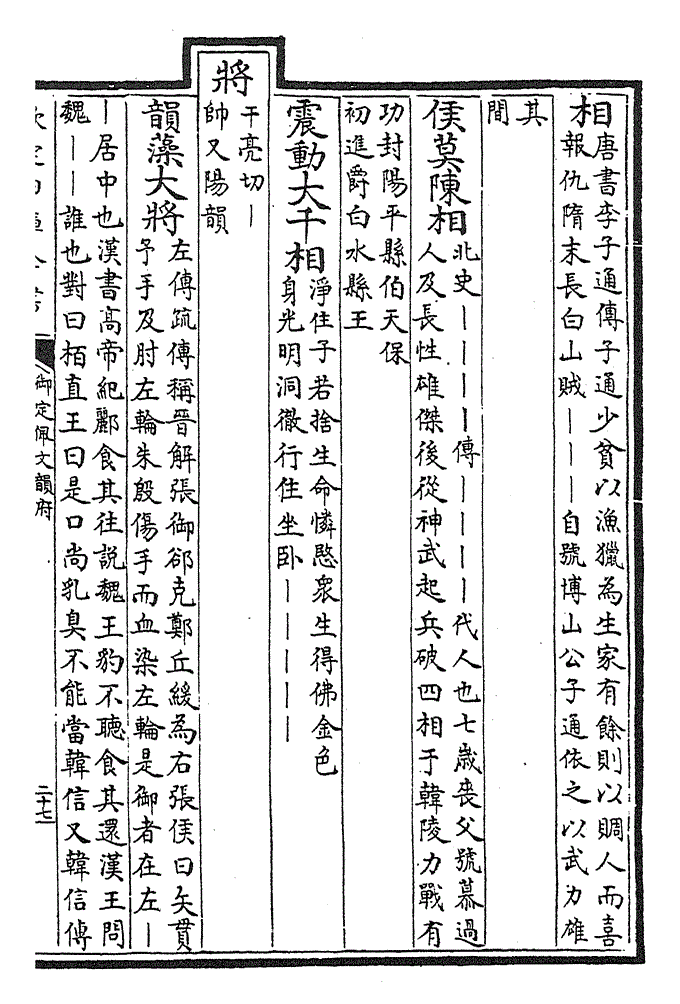 相唐書李子通傳子通少貧以漁獵為生家有餘則以賙人而喜
報仇隋末長白山賊｜｜｜自號博山公子通依之以武力雄
其
間
侯莫陳相北史｜｜｜｜傳｜｜｜｜代人也七歲喪父號慕過
人及長性雄傑後從神武起兵破四相于韓陵力戰有
功封陽平縣伯天保
初進爵白水縣王
震動大千相淨住子若捨生命憐愍衆生得佛金色
身光明洞徹行住坐卧｜｜｜｜｜
將
干亮切｜
帥又陽韻
韻藻大將左傳疏傳稱晉解張御郤克鄭丘緩為右張侯曰矢貫
予手及肘左輪朱殷傷手而血染左輪是御者在左｜
｜居中也漢書高帝紀酈食其往説魏王豹不聽食其還漢王問
魏｜｜誰也對曰栢直王曰是口尚乳臭不能當韓信又韓信傳
御定佩文韻府
二十七